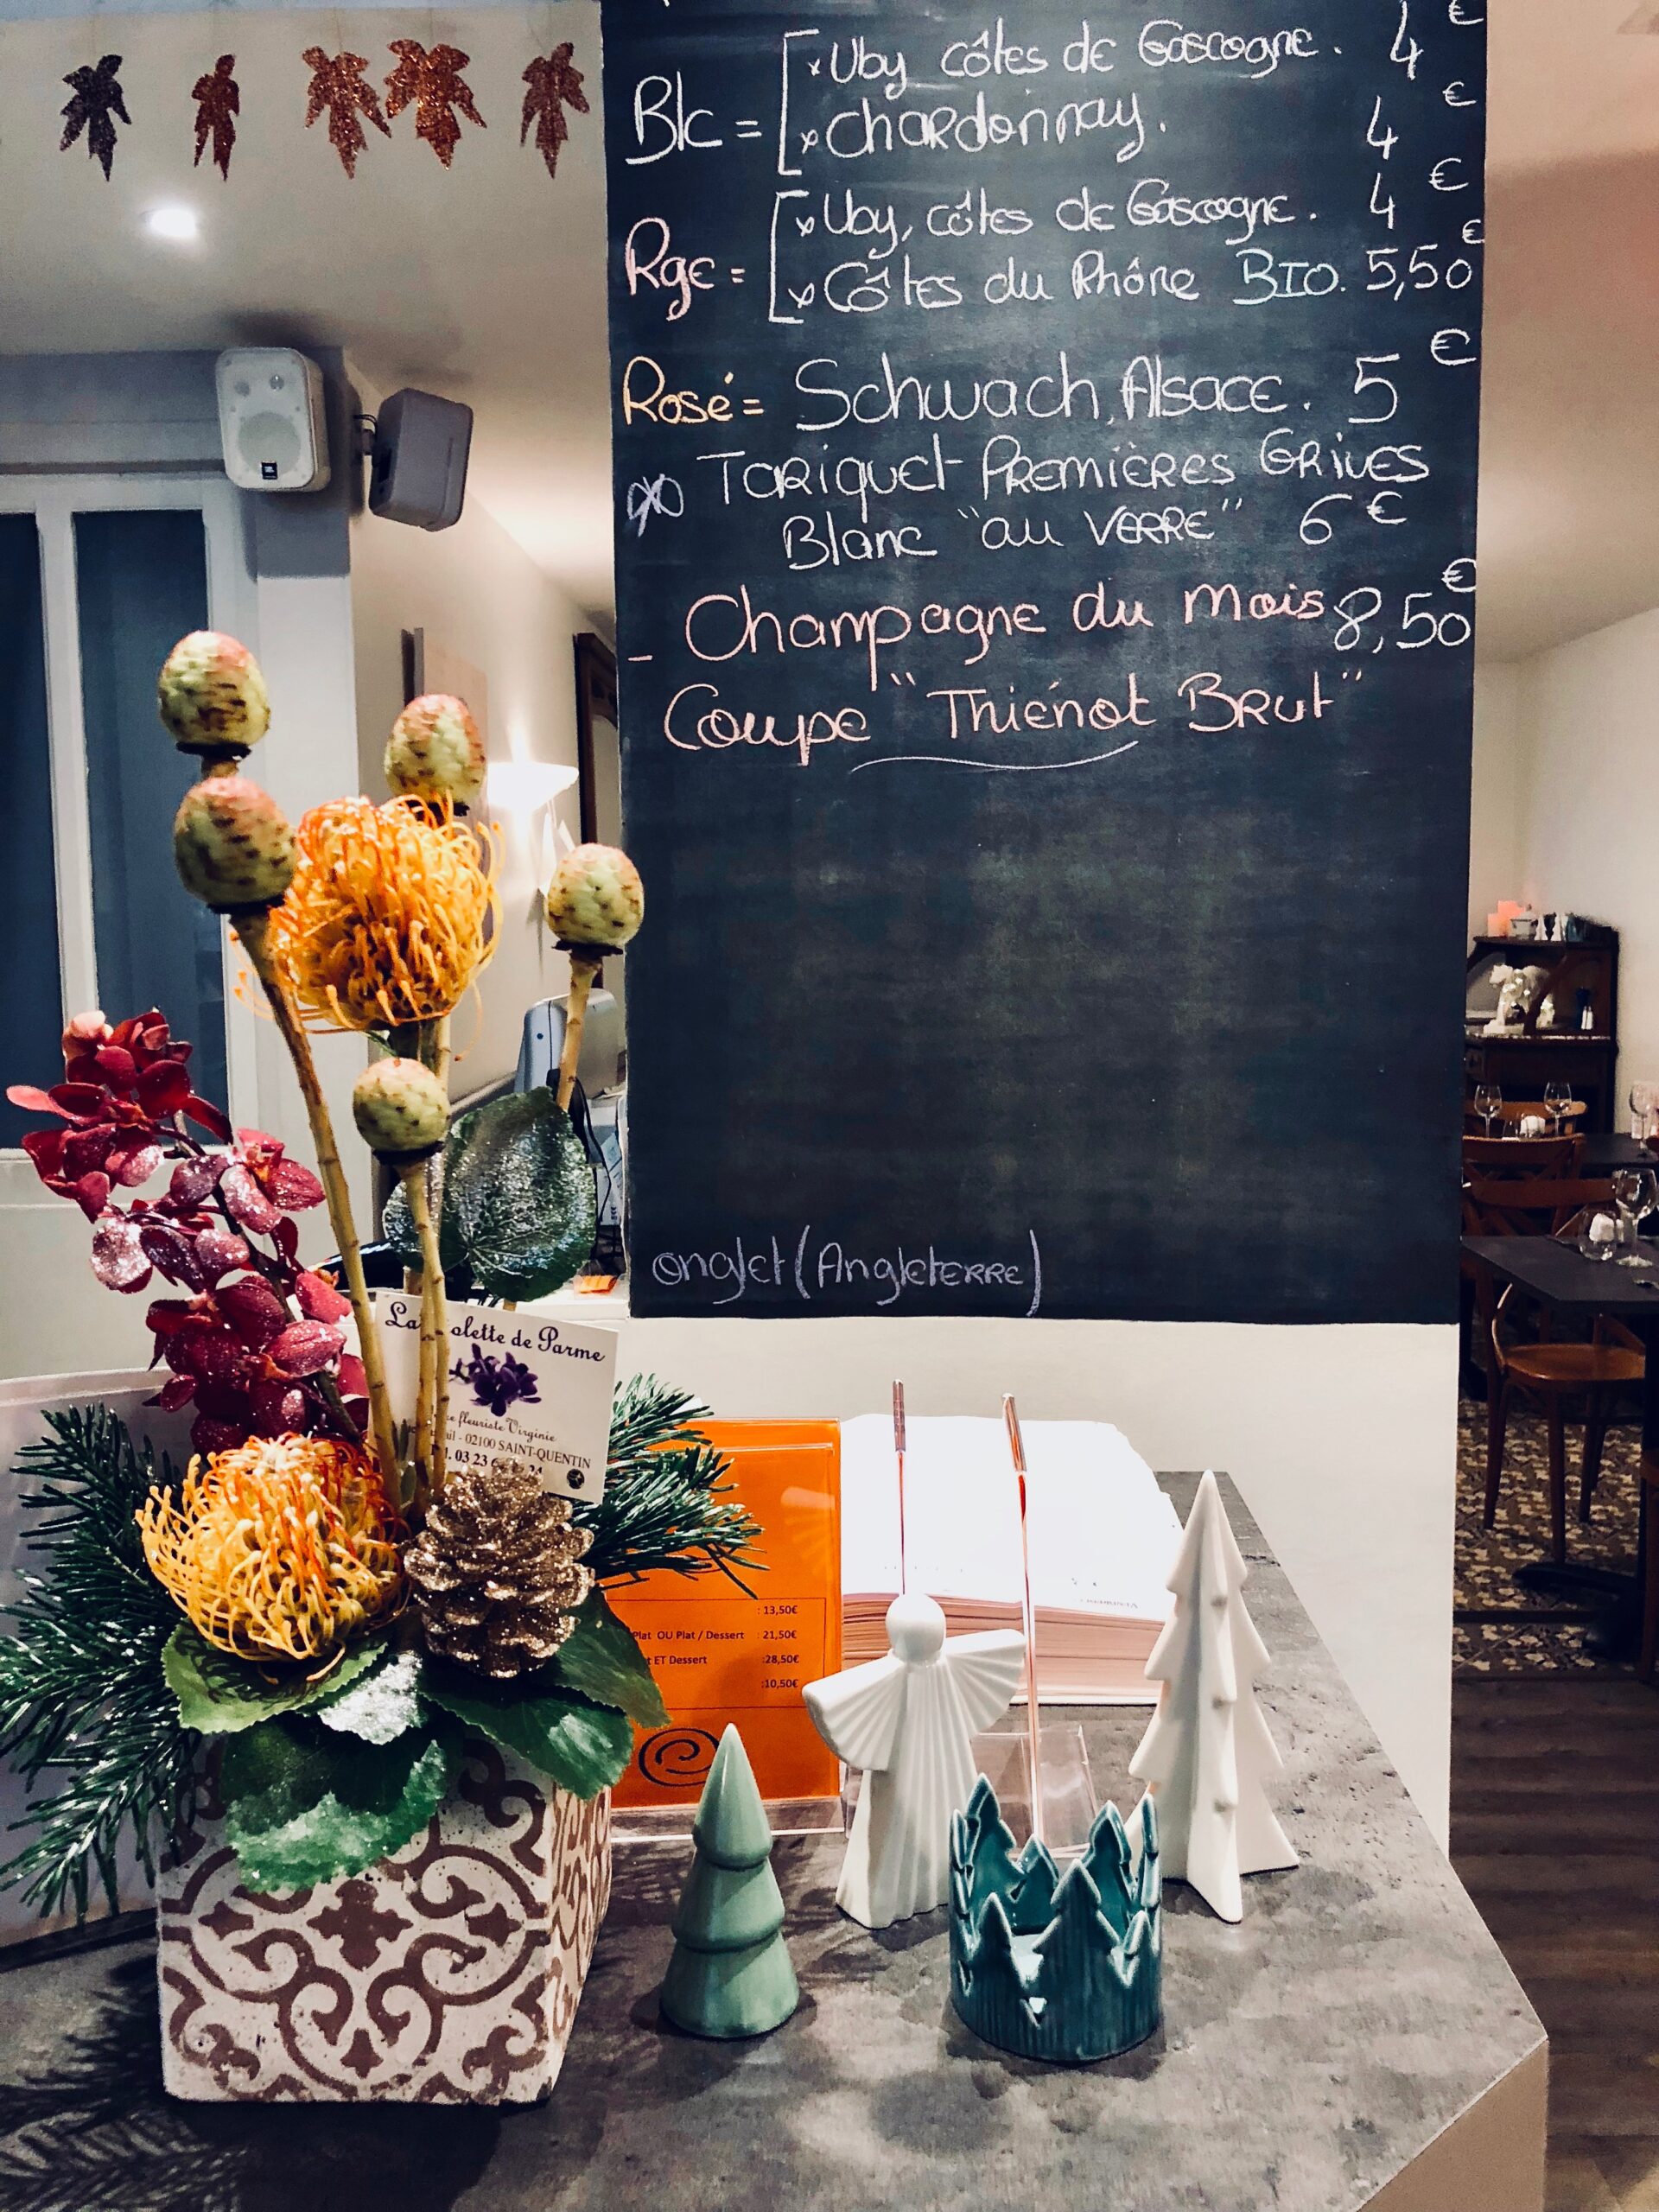 Blc = × Uby côtes de Gascogne. 4 €
× Chardonnay. 4 €
Rge = × Uby, côtes de Gascogne. 4 €
× Côtes du Rhône BIO. 5,50 €
Rosé = Schwach, Alsace. 5 €
Tariquet Premières Grives
Blanc "au verre" 6 €
- Champagne du mois 8,50 €
Coupe "Thiénot Brut"
onglet (Angleterre)
La olette de Parme
fleuriste Virginie
- 02100 SAINT-QUENTIN
03 23
: 13,50€
Plat OU Plat / Dessert : 21,50€
ET Dessert :28,50€
:10,50€